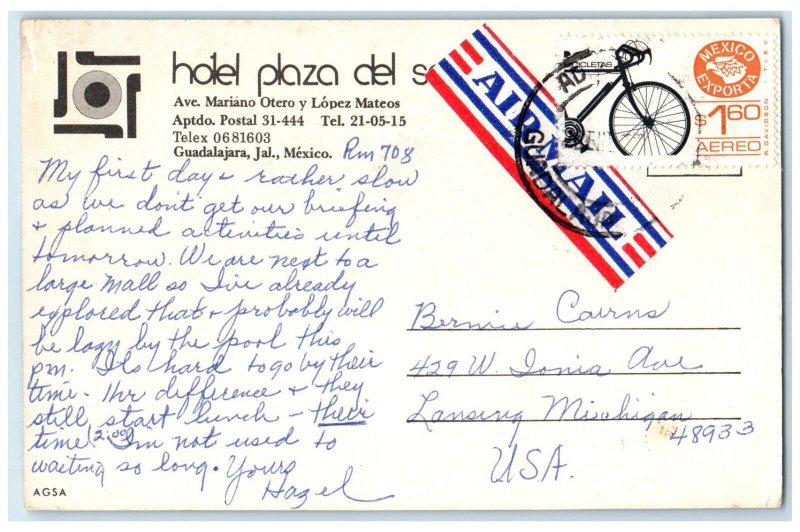 hotel plaza del s
Ave. Mariano Otero y López Mateos
Aptdo. Postal 31-444 Tel. 21-05-15
Telex 0681603
Guadalajara, Jal., México. Rm 708
My first day & rather slow
as we don't get our briefing
& planned activities until
tomorrow. We are next to a
large mall so I've already
explored that & probably will
be lazy by the pool this
pm. Its hard to go by their
time - 1hr difference & they
still start lunch - their
time 2:00. I'm not used to
waiting so long. Yours
Hazel
AGSA
AIR MAIL
BICICLETAS
MEXICO
EXPORTA
$1.60
AEREO
T.I.E.V.
R. DAVIDSON
GUADALAJ
Bernice Cairns
429 W. Ionia Ave
Lansing Michigan
48933
USA.